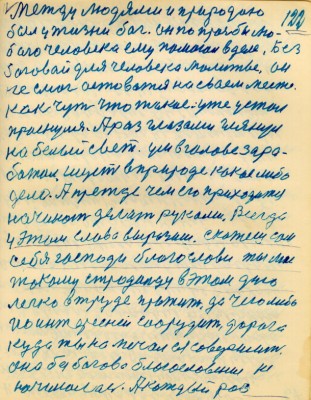 Между людями и природою 122
был у жизни бог. он по прозьби лю-
бого человека ему помогал в деле, Без
боговай для человека молитье, он
не смог оставатся на своем месте.
как чуть что такое. уже устал
проснулся. А раз глазами глянул
на белый свет. ум в голове зара-
ботал, ищет в природе какое либо
дело. А прежде чем его приходится
начинат делат руками, Всегда
у этом слова выразим. скажеш сам
себя господи благослови ты мне
такому страдальцу в этом дню
легко в труде прожит, да чего либо
поинтересней соорудит, дорога
куда ты на писал ся совершит.
она без богова благословения не
начиналас. А каждый раз